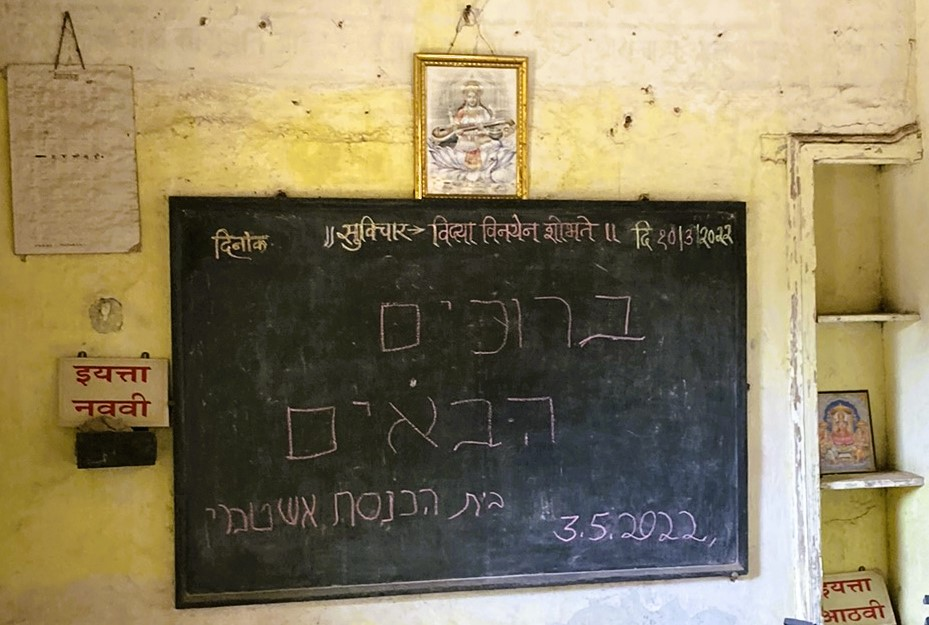 दिनांक ॥ सुविचार → विद्या विनयेन शोभते ॥ दि १०/३/२०२२
ברוכים
הבאים
בית הכנסת אשטמרי
3.5.2022,
इयत्ता
नववी
इयत्ता
आठवी